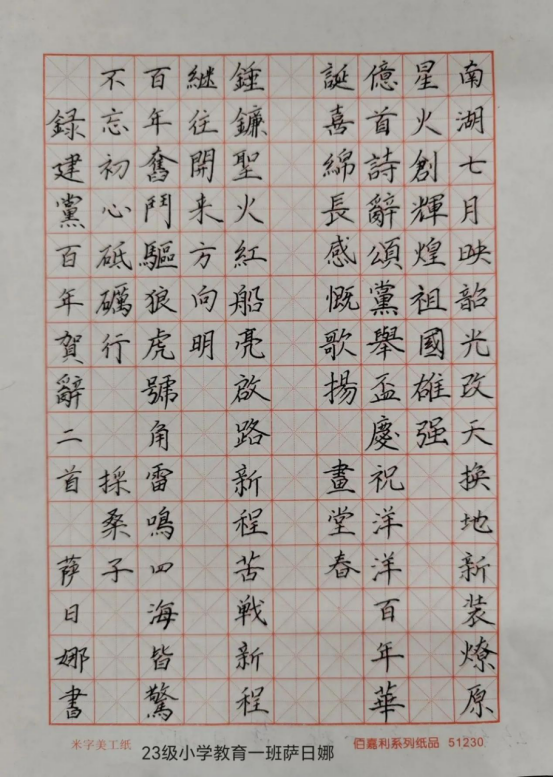 南湖七月映韶光改天換地新装燎原
星火創輝煌祖國雄强
億首詩辭頌黨舉盃慶祝洋洋百年華
誕喜綿長感慨歌揚 畫堂春
錘鐮聖火紅船亮啟路新程苦戰新程
継往開来方向明
百年奮鬥驅狼虎號角雷鳴四海皆驚
不忘初心砥礪行 採桑子
録建黨百年賀辭二首 萨日娜書
米字美工纸
23级小学教育一班萨日娜
佰嘉利系列纸品 51230